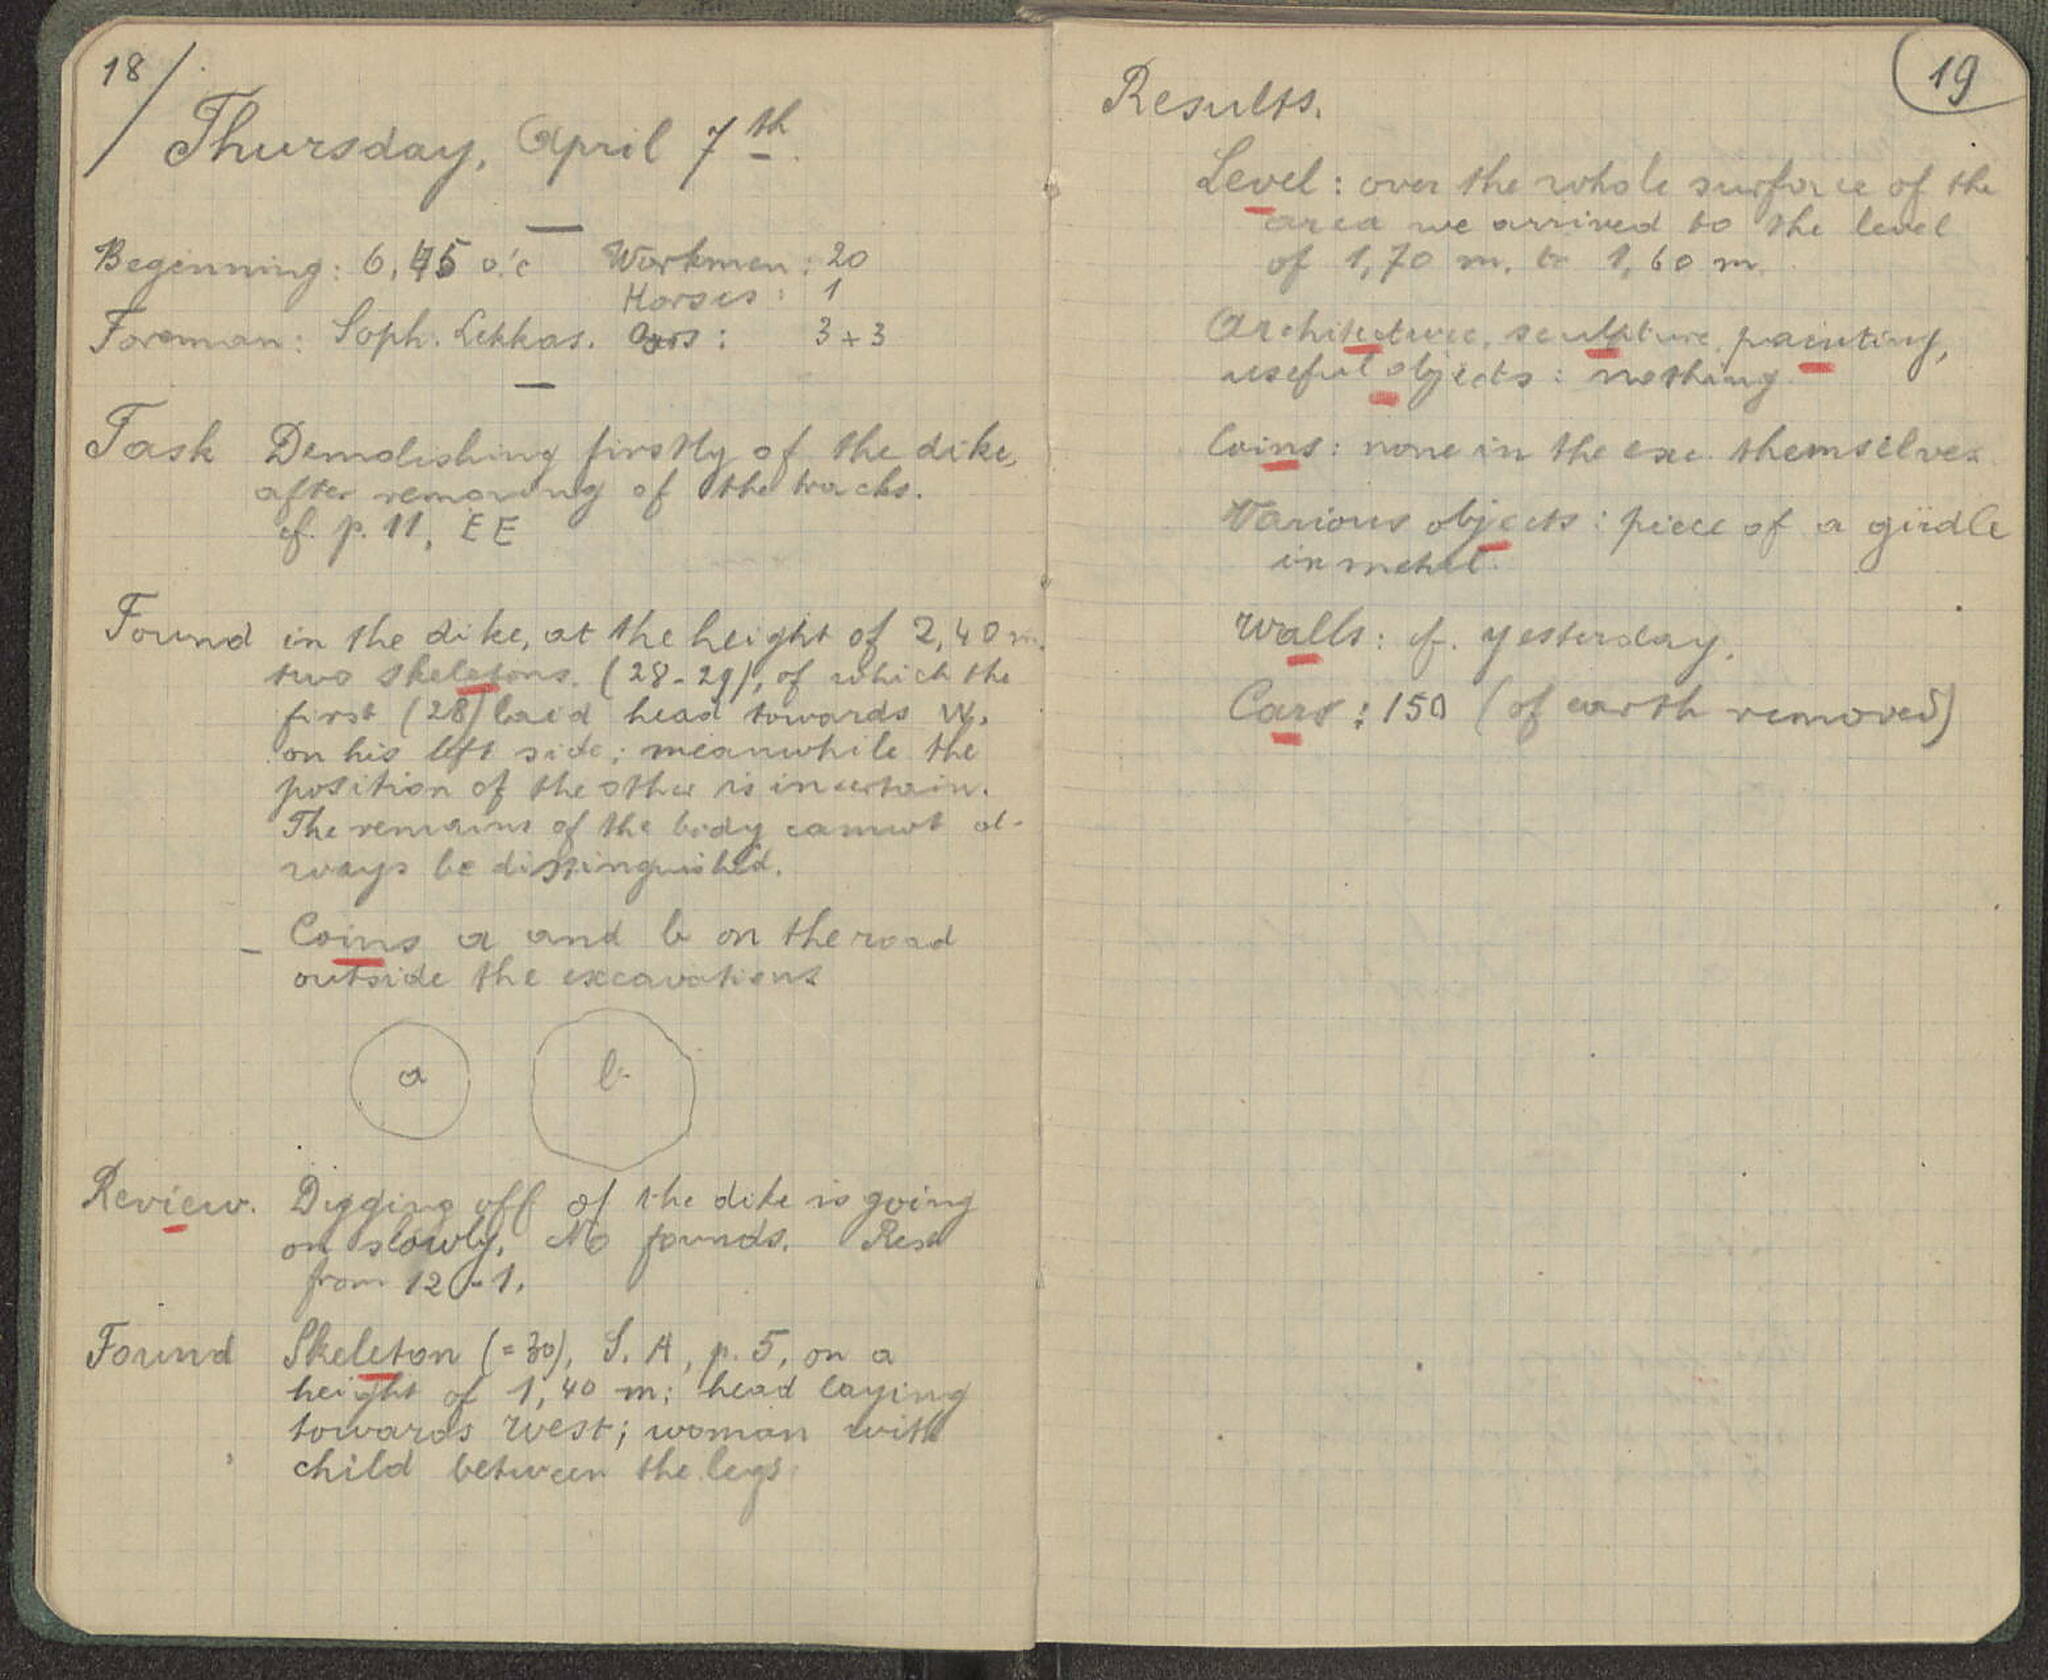 18/
Thursday, April 7th.
Beginning: 6,45 o'c Workmen: 20
Horses: 1
Foreman: Soph. Lekkas. Cars: 3+3
Task Demolishing firstly of the dike,
after removing of the tracks.
cf. p. 11, EE
Found in the dike, at the height of 2,40 m.
two skeletons. (28-29), of which the
first (28) laid head towards W.
on his left side; meanwhile the
position of the other is incertain.
The remains of the body cannot al-
ways be distinguished.
- Coins a and b on the road
outside the excavations
a b
Review. Digging off of the dike is going
on slowly. No founds. Rest
from 12-1.
Found Skeleton (=30), S. A, p. 5, on a
height of 1,40 m; head laying
towards west; woman with
child between the legs
19
Results.
Level: over the whole surface of the
area we arrived to the level
of 1,70 m. to 1,60 m.
Architecture, sculpture, painting,
useful objects: nothing
Coins: none in the exc. themselves
Various objects: piece of a girdle
in metal.
Walls: cf. yesterday.
Cars: 150 (of earth removed)